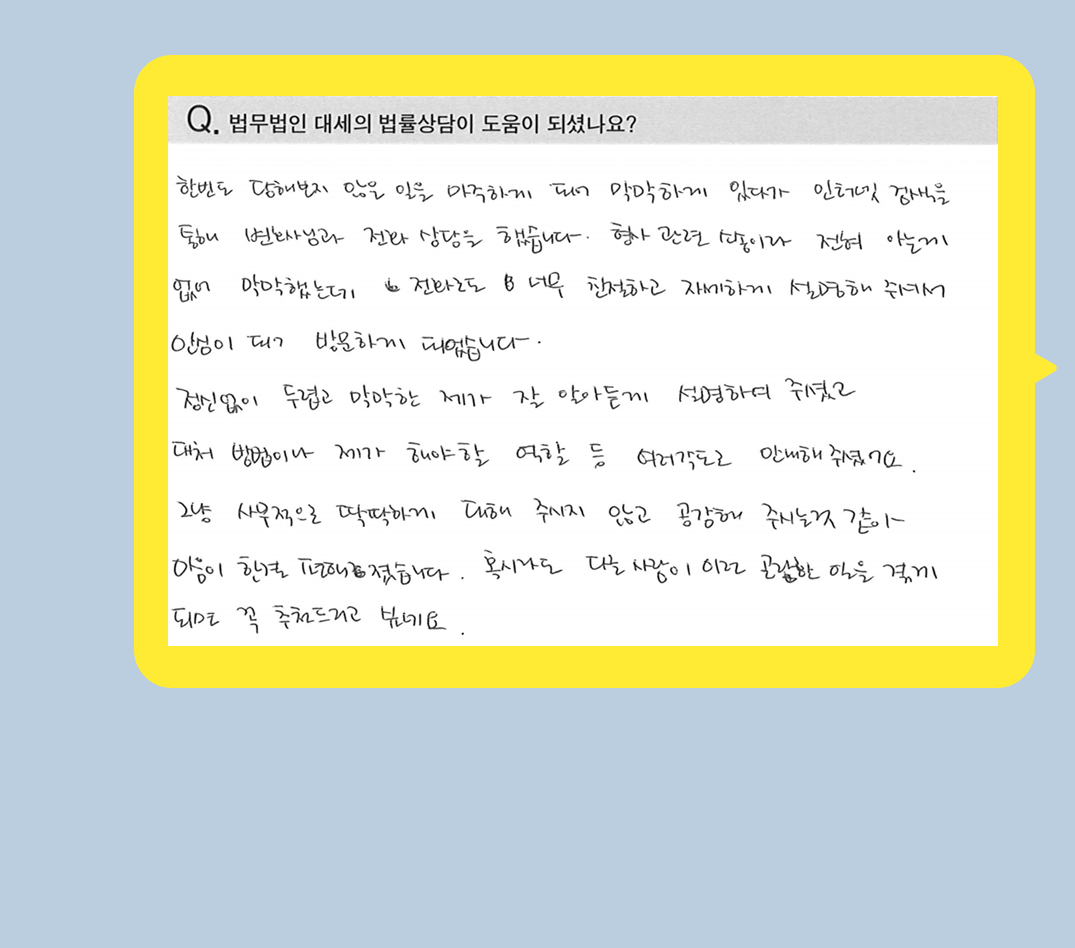 Q. 법무법인 대세의 법률상담이 도움이 되셨나요?
한번도 당해보지 않을 일을 마주하게 되어 막막하게 있다가 인터넷 검색을
통해 변호사님과 전화 상담을 했습니다. 형사 관련 소송이라 전혀 아는게
없어 막막했는데 전화로도 너무 친절하고 자세하게 설명해 주셔서
안심이 되어 방문하게 되었습니다.
정신없이 두렵고 막막한 제가 잘 알아듣게 설명하여 주셨고
대처 방법이나 제가 해야할 역할 등 여러각도로 안내해 주셨어요.
그냥 사무적으로 딱딱하게 대해 주시지 않고 공감해 주시는것 같아
마음이 한결 편해졌습니다. 혹시라도 다른 사람이 이런 곤란한 일을 겪게
되면 꼭 추천드리고 싶네요.